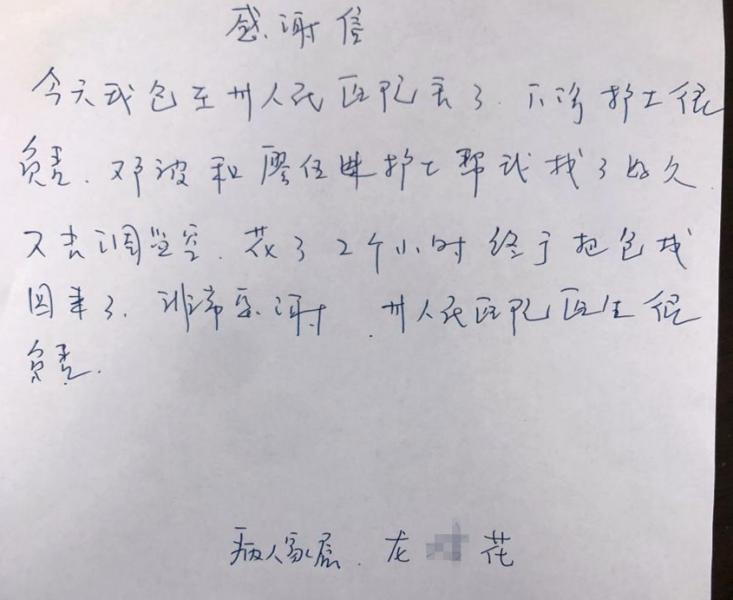 感谢信
今天我包在州人民医院丢了.门诊护士很
负责.邓波和廖伍姝护士帮我找了好久
又去调监控.花了2个小时终于把包找
回来了.非常感谢.州人民医院医生很
负责.
病人家属.龙 花